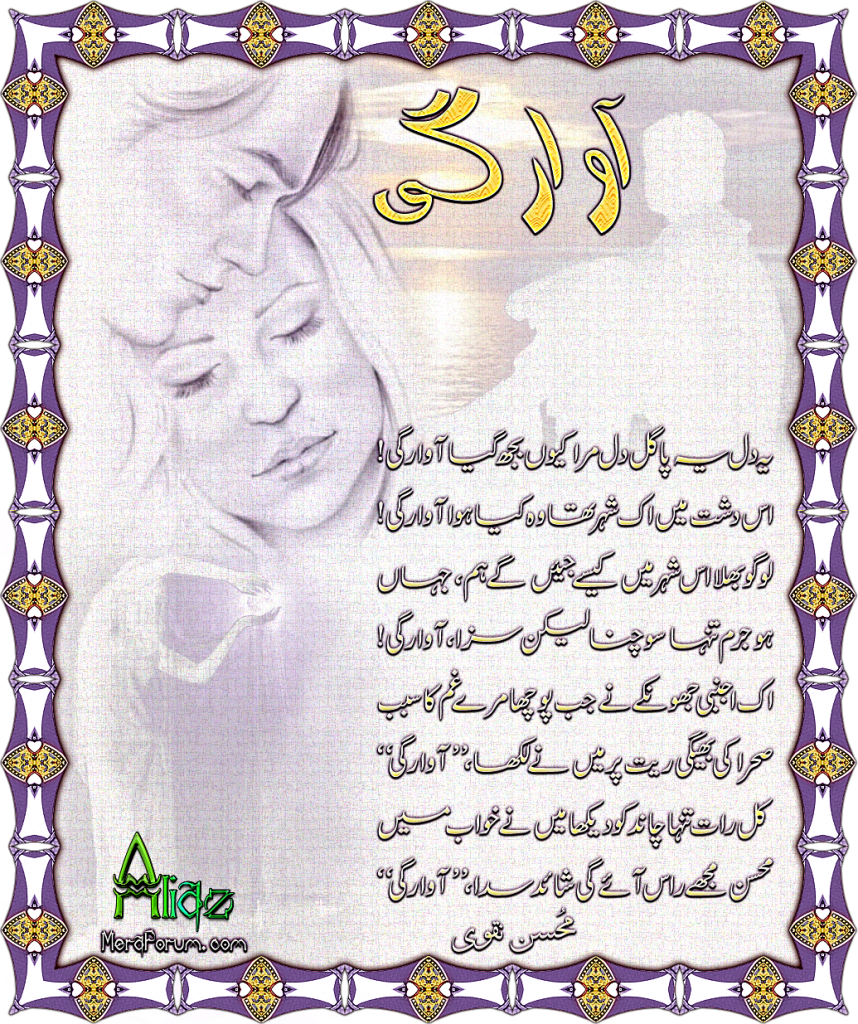 آوارگی
یہ دل یہ پاگل دل مرا کیوں بجھ گیا آوارگی!
اس دشت میں اک شہر تھا وہ کیا ہوا آوارگی!
لوگو بھلا اس شہر میں کیسے جئیں گے ہم، جہاں
ہو جرم تنہا سوچنا لیکن سزا، آوارگی!
اک اجنبی جھونکے نے جب پوچھا مرے غم کا سبب
صحرا کی بھیگی ریت پر میں نے لکھا، ”آوارگی“
کل رات تنہا چاند کو دیکھا میں نے خواب میں
محسن مجھے راس آئے گی شائد سدا، ”آوارگی“
مُحسن نقوی
Aliaz
MeraForum.com